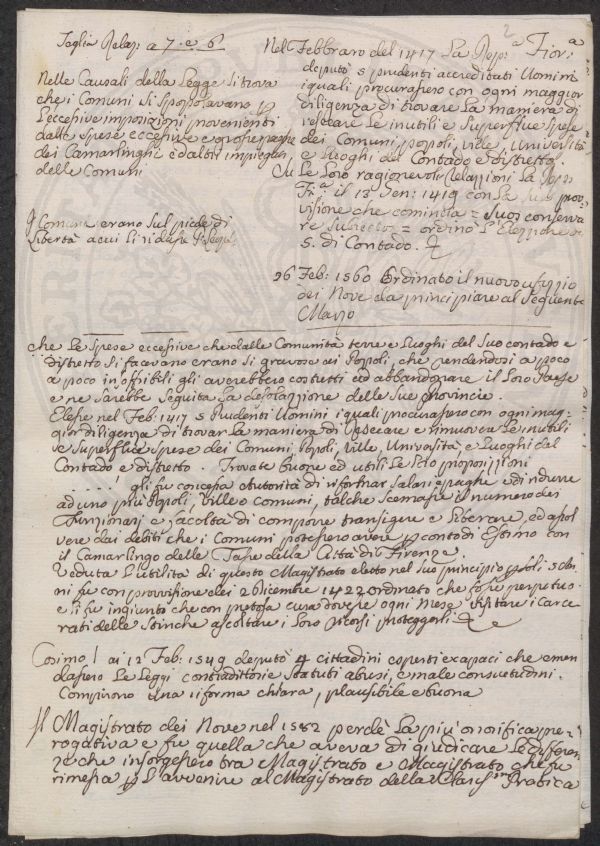 Taglia Relaz: a 7. e 6
Nelle Causali della Legge si trova
che i Comuni si spopolavano p
l'eccessive imposizioni provenienti
dalle spese eccessive e grosse paghe
dei Camarlinghi e d'altri impiegati
delle Comuni
Comuni erano sul piede di
Libertà a cui li
2
Nel Febbraro del 1417 La Rep:ª Fior:ª
deputò 5 prudenti accreditati Uomini
i quali procurassero con ogni maggior
diligenza di trovare La maniera di
resecare Le inutili e superflue spese
dei Comuni popoli, ville, Università
e Luoghi del Contado e distretto.
Le Loro ragionevoli Relazzioni La Rep
Fi:ª il 13 Gen: 1419 con La sua prov=
visione che comincia = Suos conserva
re subiectos = ordinò L'Elezzione de
5. di Contado.
26 Feb: 1560 Ordinato il nuovo ufizzio
dei Nove da principiare al seguente
Marzo
che Le spese eccessive che dalle Comunità terre e Luoghi del suo contado e
distretto si facevano erano sì gravose ai Popoli, che rendendosi a poco
a poco insoffribili gli averebbero costretti ad abbandonare il Loro Paese
e ne sarebbe seguita La desolazzione delle sue provincie.
Elesse nel Feb: 1417 5 Prudenti Uomini i quali procurassero con ogni mag=
gior diligenza di trovar La maniera di resecare e rimuovere Le inutili
e superflue spese dei Comuni, Popoli, Ville, Università, e Luoghi dal
Contado e distretto. Trovate buone ed utili Le Loro proposizzioni
...... gli fu concessa autorità di riformar salari e paghe e di ridurre
ad uno più Popoli, ville o comuni, talche scemasse il numero dei
Funzionarj e facoltà di comporre transigere e Liberare, ed assol
vere dai debiti che i Comuni potessero avere p conto di Estimo con
il Camarlingo delle Tasse della Città di Firenze.
Veduta L'utilità di questo Magistrato eletto nel suo principio p soli 5
ni fu con provvisione dei 2 Dicembre 1422 ordinato che fosse perpetuo.
e li fu ingiunto che con pietosa cura dovesse ogni Mese visitare i Carce
rati delle Stinche ascoltare i Loro ricorsi proteggerli
Cosimo I ai 12 Feb: 1549 deputò 4 cittadini esperti e capaci che emen
dassero Le Leggi contradittorie statuti abusi, e male consuetudini.
Compirono una riforma chiara, plausibile e buona
Il Magistrato dei Nove nel 1582 perdè La più onorifica pre=
rogativa e fu quella che aveva di giudicare Le differen
ze che insorgessero tra Magistrato e Magistrato che fu
rimessa p L'avvenire al Magistrato della Clariss:ma Pratica